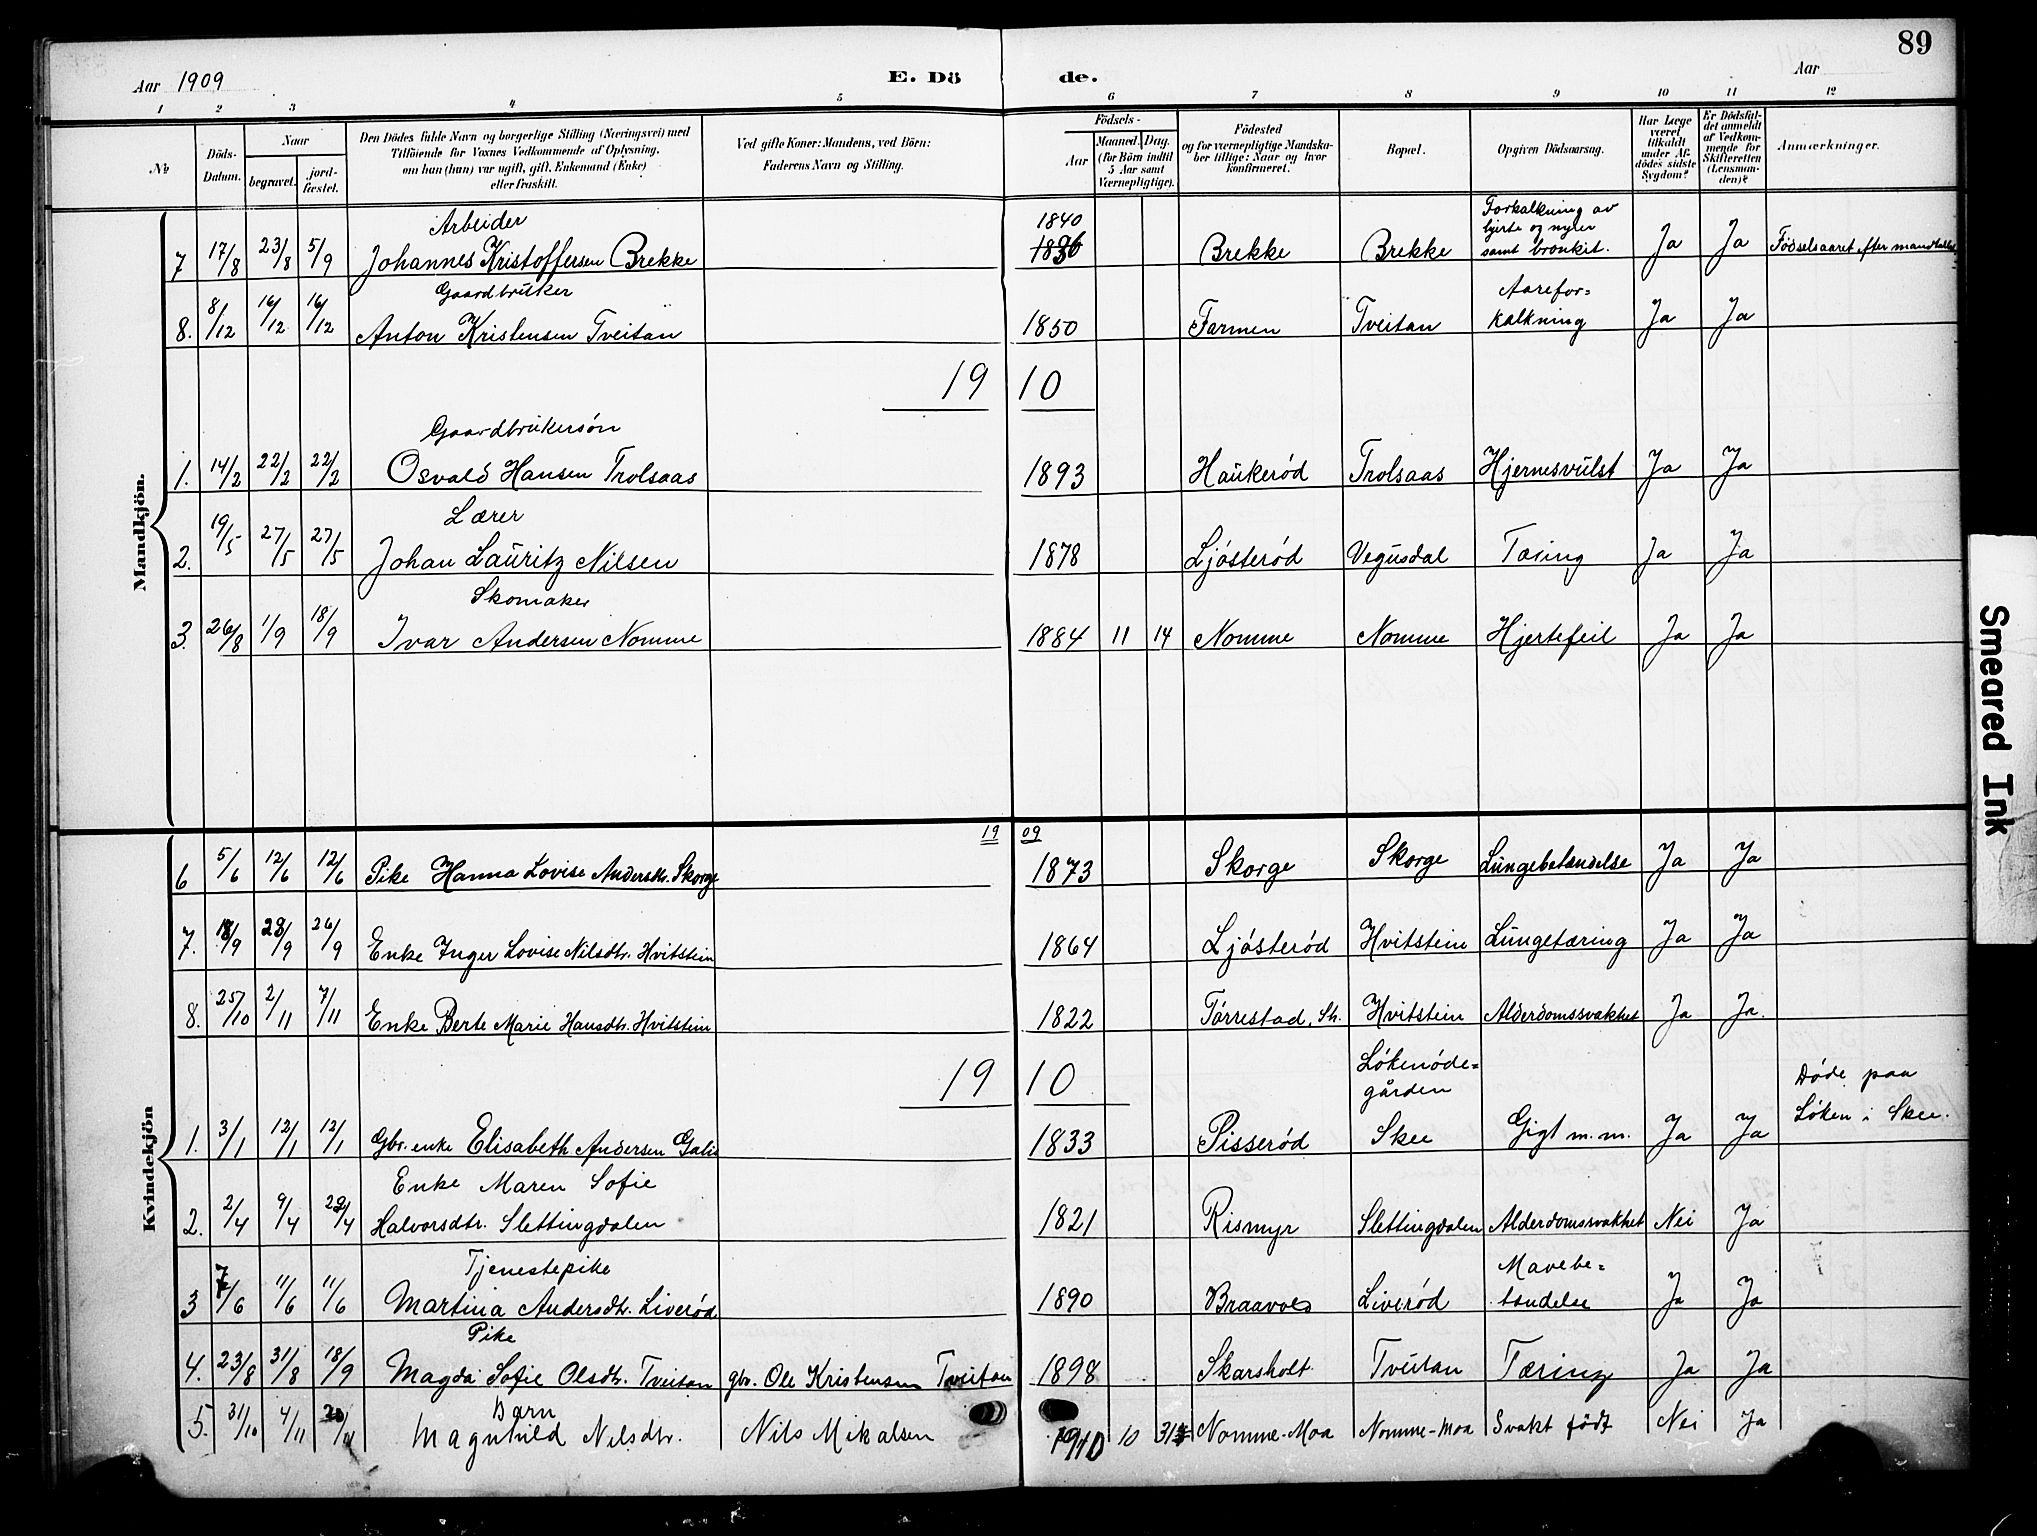 89
Aar 1909
E. Dö
de.
Aar
1 2 3 4 5 6 7 8 9 10 11 12
№
Döds-Datum.
Naar
begravet.
jord-fæstet.
Den Dödes fulde Navn og borgerlige Stilling (Næringsvei) med
Tilföiende for Voxnes Vedkommende af Oplysning,
om han (hun) var ugift, gift, Enkemand (Enke)
eller fraskilt.
Ved gifte Koner: Mandens, ved Börn:
Faderens Navn og Stilling.
Födsels-
Aar
Maaned. Dag.
(for Börn indtil
5 Aar samt
Værnepligtige).
Födested
og for værnepligtige Mandska-
ber tillige: Naar og hvor
konfirmeret.
Bopæl.
Opgiven Dödsaarsag.
Har Læge
været
tilkaldt
under Af-
dödes sidste
Sygdom?
Er Dödsfal-
det anmeldt
af Vedkom-
mende for
Skifteretten
(Lensman-
den)?
Anmærkninger.
Mandkjön.
Arbeider 1840 Forkalkning av
hjerte og nyrer
7 17/8 23/8 5/9 Johannes Kristoffersen Brekke 1836 Brekke Brekke samt bronkit. Ja Ja Födselsaaret efter mandtallet
Gaardbruker Aarefor=
8. 8/12 16/12 16/12 Anton Kristensen Tveitan 1850 Farmen Tveitan kalkning Ja Ja
19 10
Gaardbrukersön
1. 14/2 22/2 22/2 Osvald Hansen Trolsaas 1893 Haukeröd Trolsaas Hjernesvulst Ja Ja
Lærer
2. 19/5 27/5 27/5 Johan Lauritz Nilsen 1878 Ljösteröd Vegusdal Tæring Ja Ja
Skomaker
3. 26/8 1/9 18/9 Ivar Andersen Nomme 1884 11 14 Nomme Nomme Hjertefeil Ja Ja
Kvindekjön
19 09
6 5/6 12/6 12/6 Pike Hanna Lovise Andersdtr. Skorge 1873 Skorge Skorge Lungebetændelse Ja Ja
7. 18/9 23/9 26/9 Enke Inger Lovise Nilsdtr. Hvitstein 1864 Ljösteröd Hvitstein Lungetæring Ja Ja
8. 25/10 2/11 7/11 Enke Berte Marie Hansdtr. Hvitstein 1822 Törrestad, Sh. Hvitstein Alderdomssvakhet Ja Ja.
19 10 Lökenöde=
gården Döde paa
Löken i Skee.
1. 3/1 12/1 12/1 Gbr. enke Elisabeth Andersen Galis 1833 Pisseröd Skee Gigt m.m. Ja Ja
Enke Maren Sofie
2. 2/4 9/4 /4 Halvorsdtr. Slettingdalen 1821 Rismyr Slettingdalen Alderdomssvakhet Nei Ja
Tjenestepike Mavebe=
3 7/6 11/6 11/6 Martina Andersdtr. Liveröd 1890 Braavold Liveröd tændelse Ja Ja
Pike
4. 23/8 31/8 18/9 Magda Sofie Olsdtr. Tveitan gbr. Ole Kristensen Tveitan 1898 Skarsholt Tveitan Tæring Ja Ja
Barn
5. 31/10 4/11 20/11 Magnhild Nilsdtr. Nils Mikalsen 1910 10 31 Nomme-Moa Nomme-Moa Svakt født Nei Ja
Smeared Ink